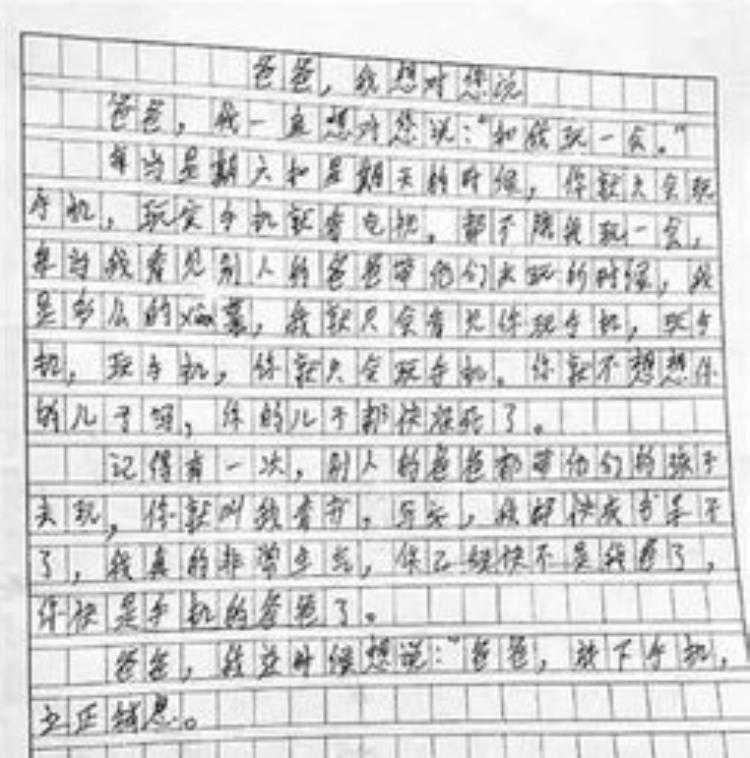 爸爸，我想对您说
爸爸，我一直想对您说：“和我玩一会。”
每当星期六和星期天的时候，你就只会玩
手机，玩完手机就看电视，都不陪我玩一会，
每当我看见别人的爸爸带他们去玩的时候，我
是多么的xian慕，我就只会看见你玩手机，玩手
机，玩手机，你就只会玩手机。你就不想想你
的儿子吗，你的儿子都快疯了。
记得有一次，别人的爸爸都带他们的孩子
去玩，你就叫我看书，写，我都快成书呆子
了，我真的非常生气，你已经快不是我爸了，
你快是手机的爸爸了。
爸爸，我这时候想说：“爸爸，放下手机，
立正稍息。